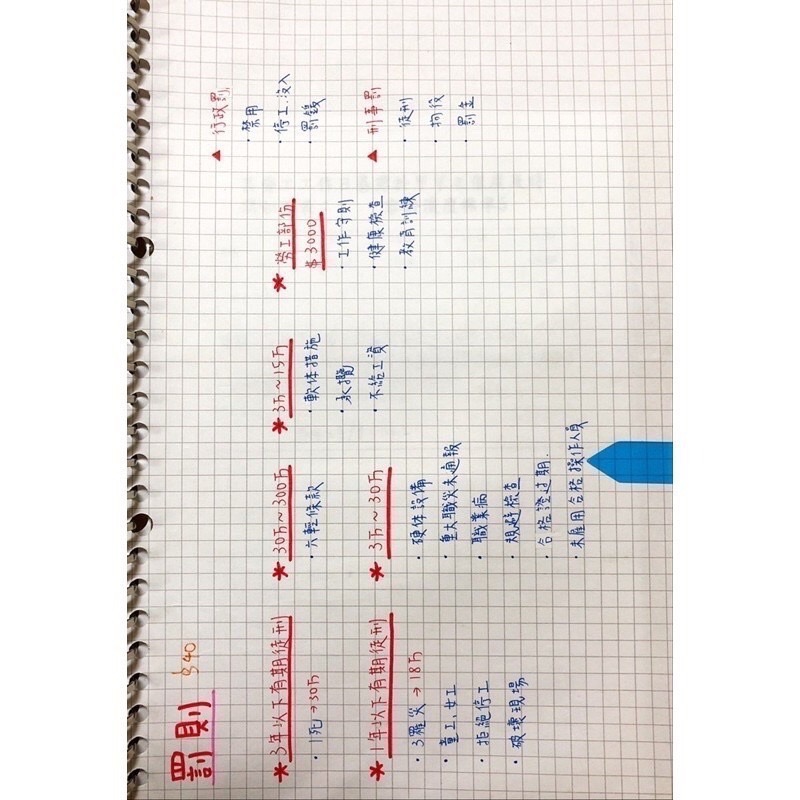 罰則 §40
* 3年以下有期徒刑
・1死→30万
* 1年以下有期徒刑
・3罹災→18万
・童工、女工
・拒絕停工
・破壞現場
* 30万~300万
・六輕條款
* 3万~30万
・硬体設備
・重大職災未通報
・職業病
・規避檢查
・合格證过期.
・未雇用合格操作人員
* 3万~15万
・軟体措施
・承攬
・不給工資
* 勞工部份
$3000
・工作守則
・健康檢查
・教育訓練
▲ 行政罰.
・禁用
・停工.沒入
・罰鍰
▲ 刑事罰
・徒刑
・拘役
・罰金